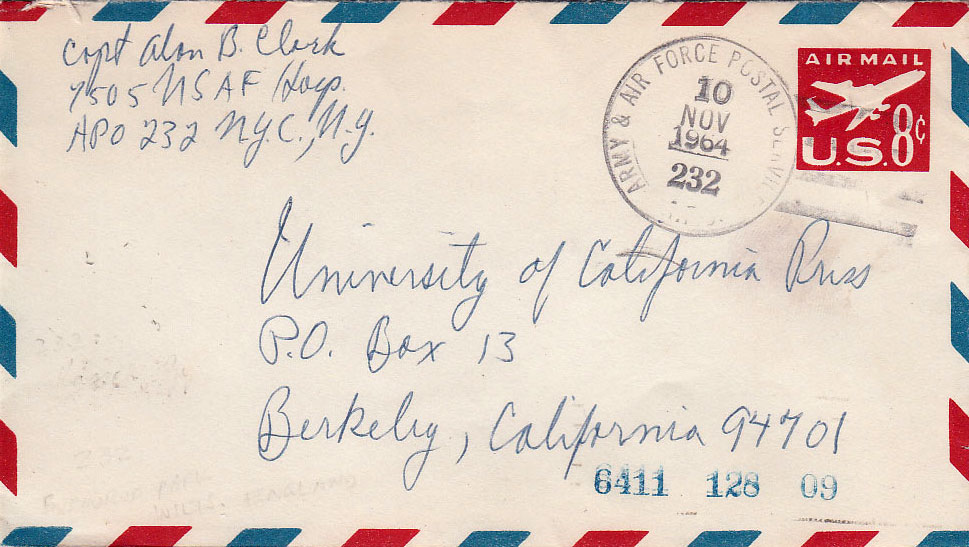 Capt Alan B. Clark
7505 USAF Hosp.
APO 232 N.Y.C., N.Y.
ARMY & AIR FORCE POSTAL SERVICE
10
NOV
1964
232
AIR MAIL
U.S. 8¢
University of California Press
P.O. Box 13
Berkeley, California 94701
6411 128 09
232
PARK
WILTS. ENGLAND